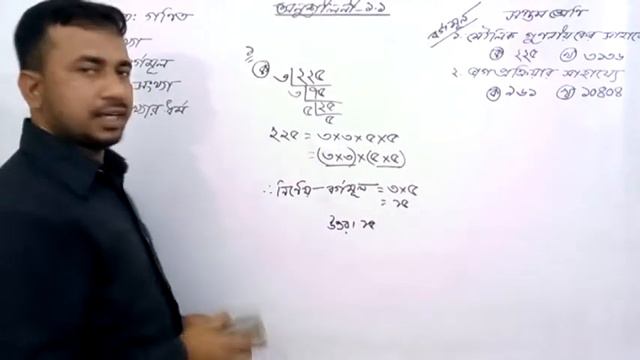 অনুশীলনী-১.১
: গণিত
বর্গমূল
সংখ্যা
ধর্ম
সপ্তম শ্রেণি
বর্গমূল
১. মৌলিক গুণনীয়কের সাহায্যে
ক ২২৫ খ ৩১৩৬
২. ভাগ প্রক্রিয়ার সাহায্যে
ক ৯৬১ খ ১০৪০৪
১
ক ৩ ২২৫
৩ ৭৫
৫ ২৫
৫
২২৫ = ৩×৩×৫×৫
= (৩×৩)×(৫×৫)
∴ নির্ণেয় বর্গমূল = ৩×৫
= ১৫
উত্তর। ১৫